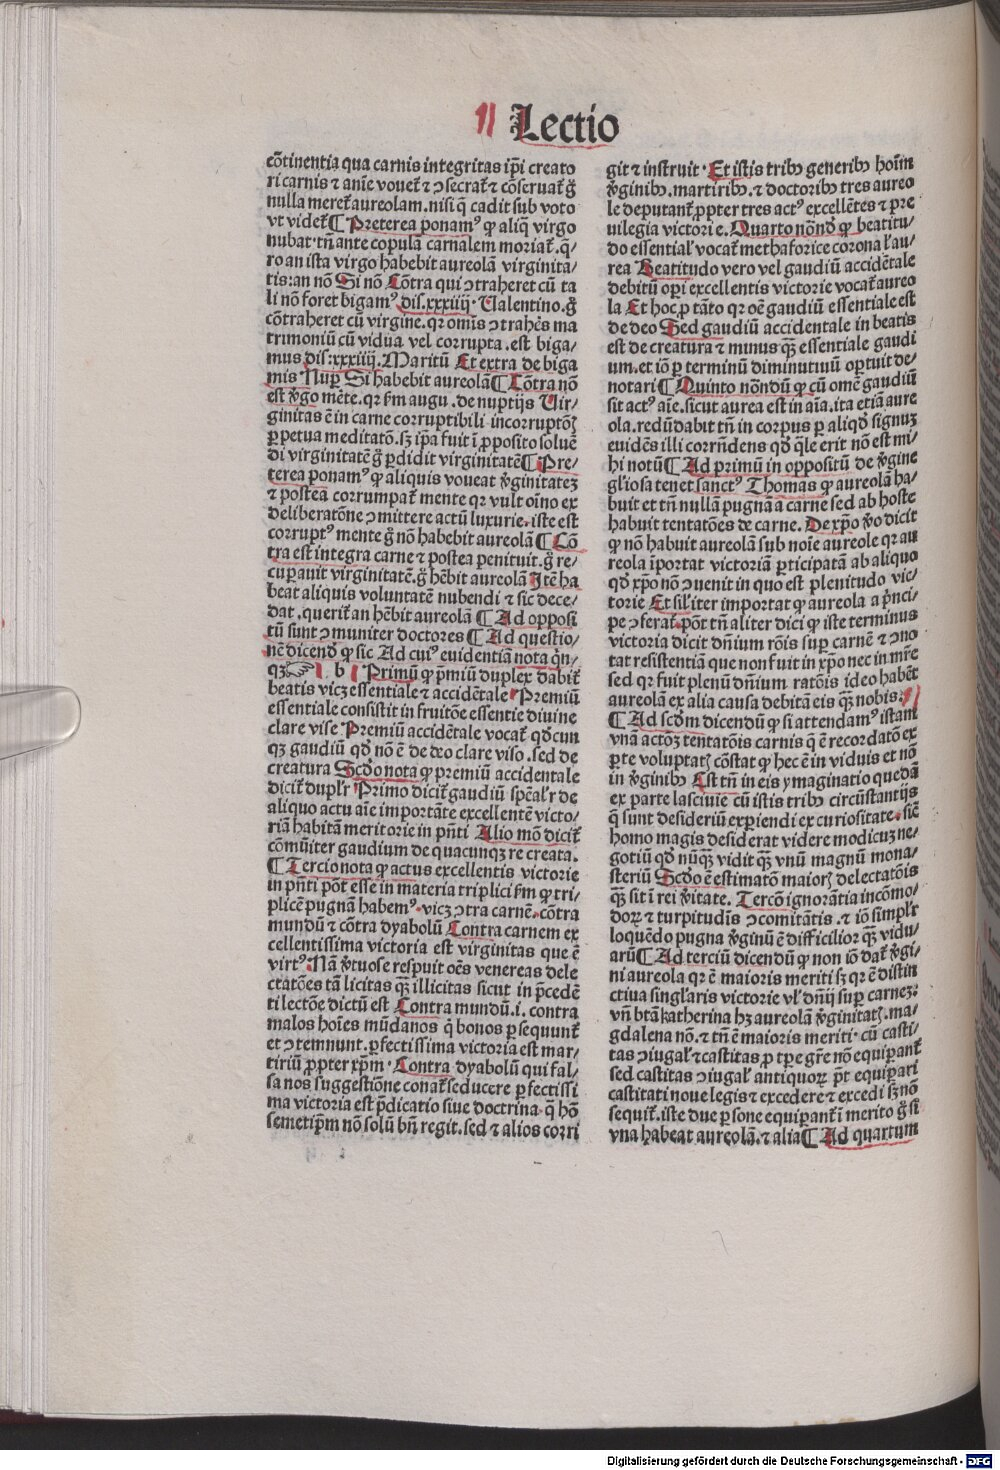 Lectio
cōtinentia qua carnis integritas ip̄i creato
ri carnis ⁊ anīe vouet᷑ ⁊ ꝯsecrat᷑ ⁊ cōseruat᷑ g̊
nulla meret᷑ aureolam. nisi q̄ cadit sub voto
vt videt᷑ ¶ Preterea ponamꝰ ꝙ aliq̄ virgo
nubat. tn̄ ante copulā carnalem moriat᷑. q̄⸗
ro an ista virgo habebit aureolā virginita⸗
tis: an nō Si nō Cōtra qui ꝯtraheret cū ta
li nō foret bigamꝰ dis. xxxiiij. Valentino. g̊
cōtraheret cū virgine. qr omīs ꝯtrahēs ma
trimoniū cū vidua vel corrupta. est biga⸗
mus dis: xxxiiij. Maritū Et extra de biga
mis Nuꝑ Si habebit aureolā ¶ Cōtra nō
est v̓go mēte. qr ẜm augu. de nuptijs Vir⸗
ginitas ē in carne corruptibili incorruptōis
ꝑpetua meditatō. sꝫ ip̄a fuit ī ꝓposito soluē
di virginitatē g̊ ꝑdidit virginitatē ¶ Pre⸗
terea ponamꝰ ꝙ aliquis voueat v̓ginitatez
⁊ postea corrumpat᷑ mente qr vult oīno ex
deliberatōne ꝯmittere actū luxurie. iste est
corruptꝰ mente g̊ nō habebit aureolā ¶ Cō
tra est integra carne ⁊ postea penituit. g̊ re⸗
cuꝑauit virginitatē. g̊ hēbit aureolā Itē ha
beat aliquis voluntatē nubendi ⁊ sic dece⸗
dat. querit᷑ an hēbit aureolā ¶ Ad opposi
tū sunt ꝯmuniter doctores ¶ Ad questio⸗
nē dicendū ꝙ sic Ad cuiꝰ euidentiā nota q̄n⸗
qꝫ b Primū ꝙ p̄miū duplex dabit᷑
beatis vicꝫ essentiale ⁊ accidētale Premiū
essentiale consistit in fruitōe essentie diuine
clare vise Premiū accidētale vocat᷑ qd̄cun
qꝫ gaudiū qd̄ nō ē de deo clare viso. sed de
creatura Scd̄o nota ꝙ premiū accidentale
dicit᷑ dupl'r Primo dicit᷑ gaudiū spēal'r de
aliquo actu aīe importāte excellentē victo⸗
riā habitā meritorie in p̄nti Alio mō dicit᷑
cōmūiter gaudium de quacunqꝫ re creata.
¶ Tercio nota ꝙ actus excellentis victorie
in p̄nti pōt esse in materia triplici ẜm ꝙ tri⸗
plicē pugnā habemꝰ. vicꝫ ꝯtra carnē. cōtra
mundū ⁊ cōtra dyabolū Contra carnem ex
cellentissima victoria est virginitas que ē
virtꝰ. Nā v̓tuose respuit oēs venereas dele
ctatōes tā licitas qꝫ illicitas sicut in p̄cedē
ti lectōe dictū est Contra mundū. i. contra
malos hoīes mūdanos q̄ bonos ꝑsequunt᷑
et ꝯtemnunt. ꝑfectissima victoria est mar⸗
tiriū ꝓpter xp̄m. Contra dyabolū qui fal⸗
sa nos suggestiōne conat᷑ seducere ꝑfectissi
ma victoria est p̄dicatio siue doctrina. q̄ hō
semetip̄m nō solū bn̄ regit. sed ⁊ alios corri
git ⁊ instruit. Et istis tribꝰ generibꝰ hoīm
v̓ginibꝰ. martiribꝰ. ⁊ doctoribꝰ tres aureo
le deputant᷑ ꝓpter tres actꝰ excellētes ⁊ pre
uilegia victorie. Quarto nōnd̄ ꝙ beatitu⸗
do essential' vocat᷑ methaforice corona l' au⸗
rea Beatitudo vero vel gaudiū accidētale
debitū oꝑi excellentis victorie vocat᷑ aureo
la Et hoc ꝓ tāto qr oē gaudiū essentiale est
de deo Sed gaudiū accidentale in beatis
est de creatura ⁊ minus qꝫ essentiale gaudi
um. et iō ꝑ terminū diminutiuū oꝑtuit de⸗
notari ¶ Quinto nōndū ꝙ cū omē gaudiū
sit actꝰ aīe. sicut aurea est in aīa. ita etiā aure
ola. redūdabit tn̄ in corpus ꝑ aliqd̄ signuꝫ
euidēs illi corrn̄dens qd̄ q̄le erit nō est mi⸗
hi notū ¶ Ad primū in oppositū de v̓gine
gl'iosa tenet sanctꝰ Thomas ꝙ aureolā ha⸗
buit et tn̄ nullā pugnā a carne sed ab hoste
habuit tentatōes de carne. De xp̄o v̓o dicit
ꝙ nō habuit aureolā sub noīe aureole qr au
reola īportat victoriā ꝑticipatā ab aliquo
qd̄ xp̄o nō ꝯuenit in quo est plenitudo vic⸗
torie Et sil'iter importat ꝙ aureola a p̄nci⸗
pe ꝯferat᷑. pōt tn̄ aliter dici ꝙ iste terminus
victoria dicit dn̄ium rōis suꝑ carnē ⁊ ꝯno
tat resistentiā que non fuit in xp̄o nec in mr̄e
sed qr fuit plenū dn̄ium ratōis ideo habēt
aureolā ex alia causa debitā eis qꝫ nobis:
¶ Ad scd̄m dicendū ꝙ si attendamꝰ istam
vnā actōꝫ tentatōis carnis q̄ ē recordatō ex
ꝑte voluptatꝭ cōstat ꝙ hec ē in viduis et nō
in v̓ginibꝰ Est tn̄ in eis ymaginatio quedā
ex parte lasciuie cū istis tribꝰ circūstantijs
q̄ sunt desideriū exꝑiendi ex curiositate. sic̄
homo magis desiderat videre modicuꝫ ne⸗
gotiū qd̄ nūqꝫ vidit qꝫ vnū magnū mona⸗
steriū Scd̄o ē estimatō maioris delectatōis
qꝫ sit ī rei v̓itate. Tercō ignorātia incōmo⸗
doꝝ ⁊ turpitudīs ꝯcomitātis. ⁊ iō simpl'r
loquēdo pugna v̓ginū ē difficilior qꝫ vidu⸗
arū ¶ Ad terciū dicendū ꝙ non iō dat᷑ v̓gi⸗
ni aureola qr ē maioris meriti sꝫ qr ē distin
ctiua singl'aris victorie vl' dn̄ij suꝑ carneꝫ:
vn̄ btā katherina hꝫ aureolā v̓ginitatꝭ. ma⸗
gdalena nō. ⁊ tn̄ ē maioris meriti. cū casti⸗
tas ꝯiugal' ⁊ castitas ꝓ tꝑe gr̄e nō equiꝑant᷑
sed castitas ꝯiugal' antiquoꝝ pn̄t equiꝑari
castitati noue legis ⁊ excedere ⁊ excedi sꝫ nō
sequit᷑. iste due ꝑsone equiꝑant᷑ ī merito g̊ si
vna habeat aureolā. ⁊ alia ¶ Ad quartum
Digitalisierung gefördert durch die Deutsche Forschungsgemeinschaft - DFG